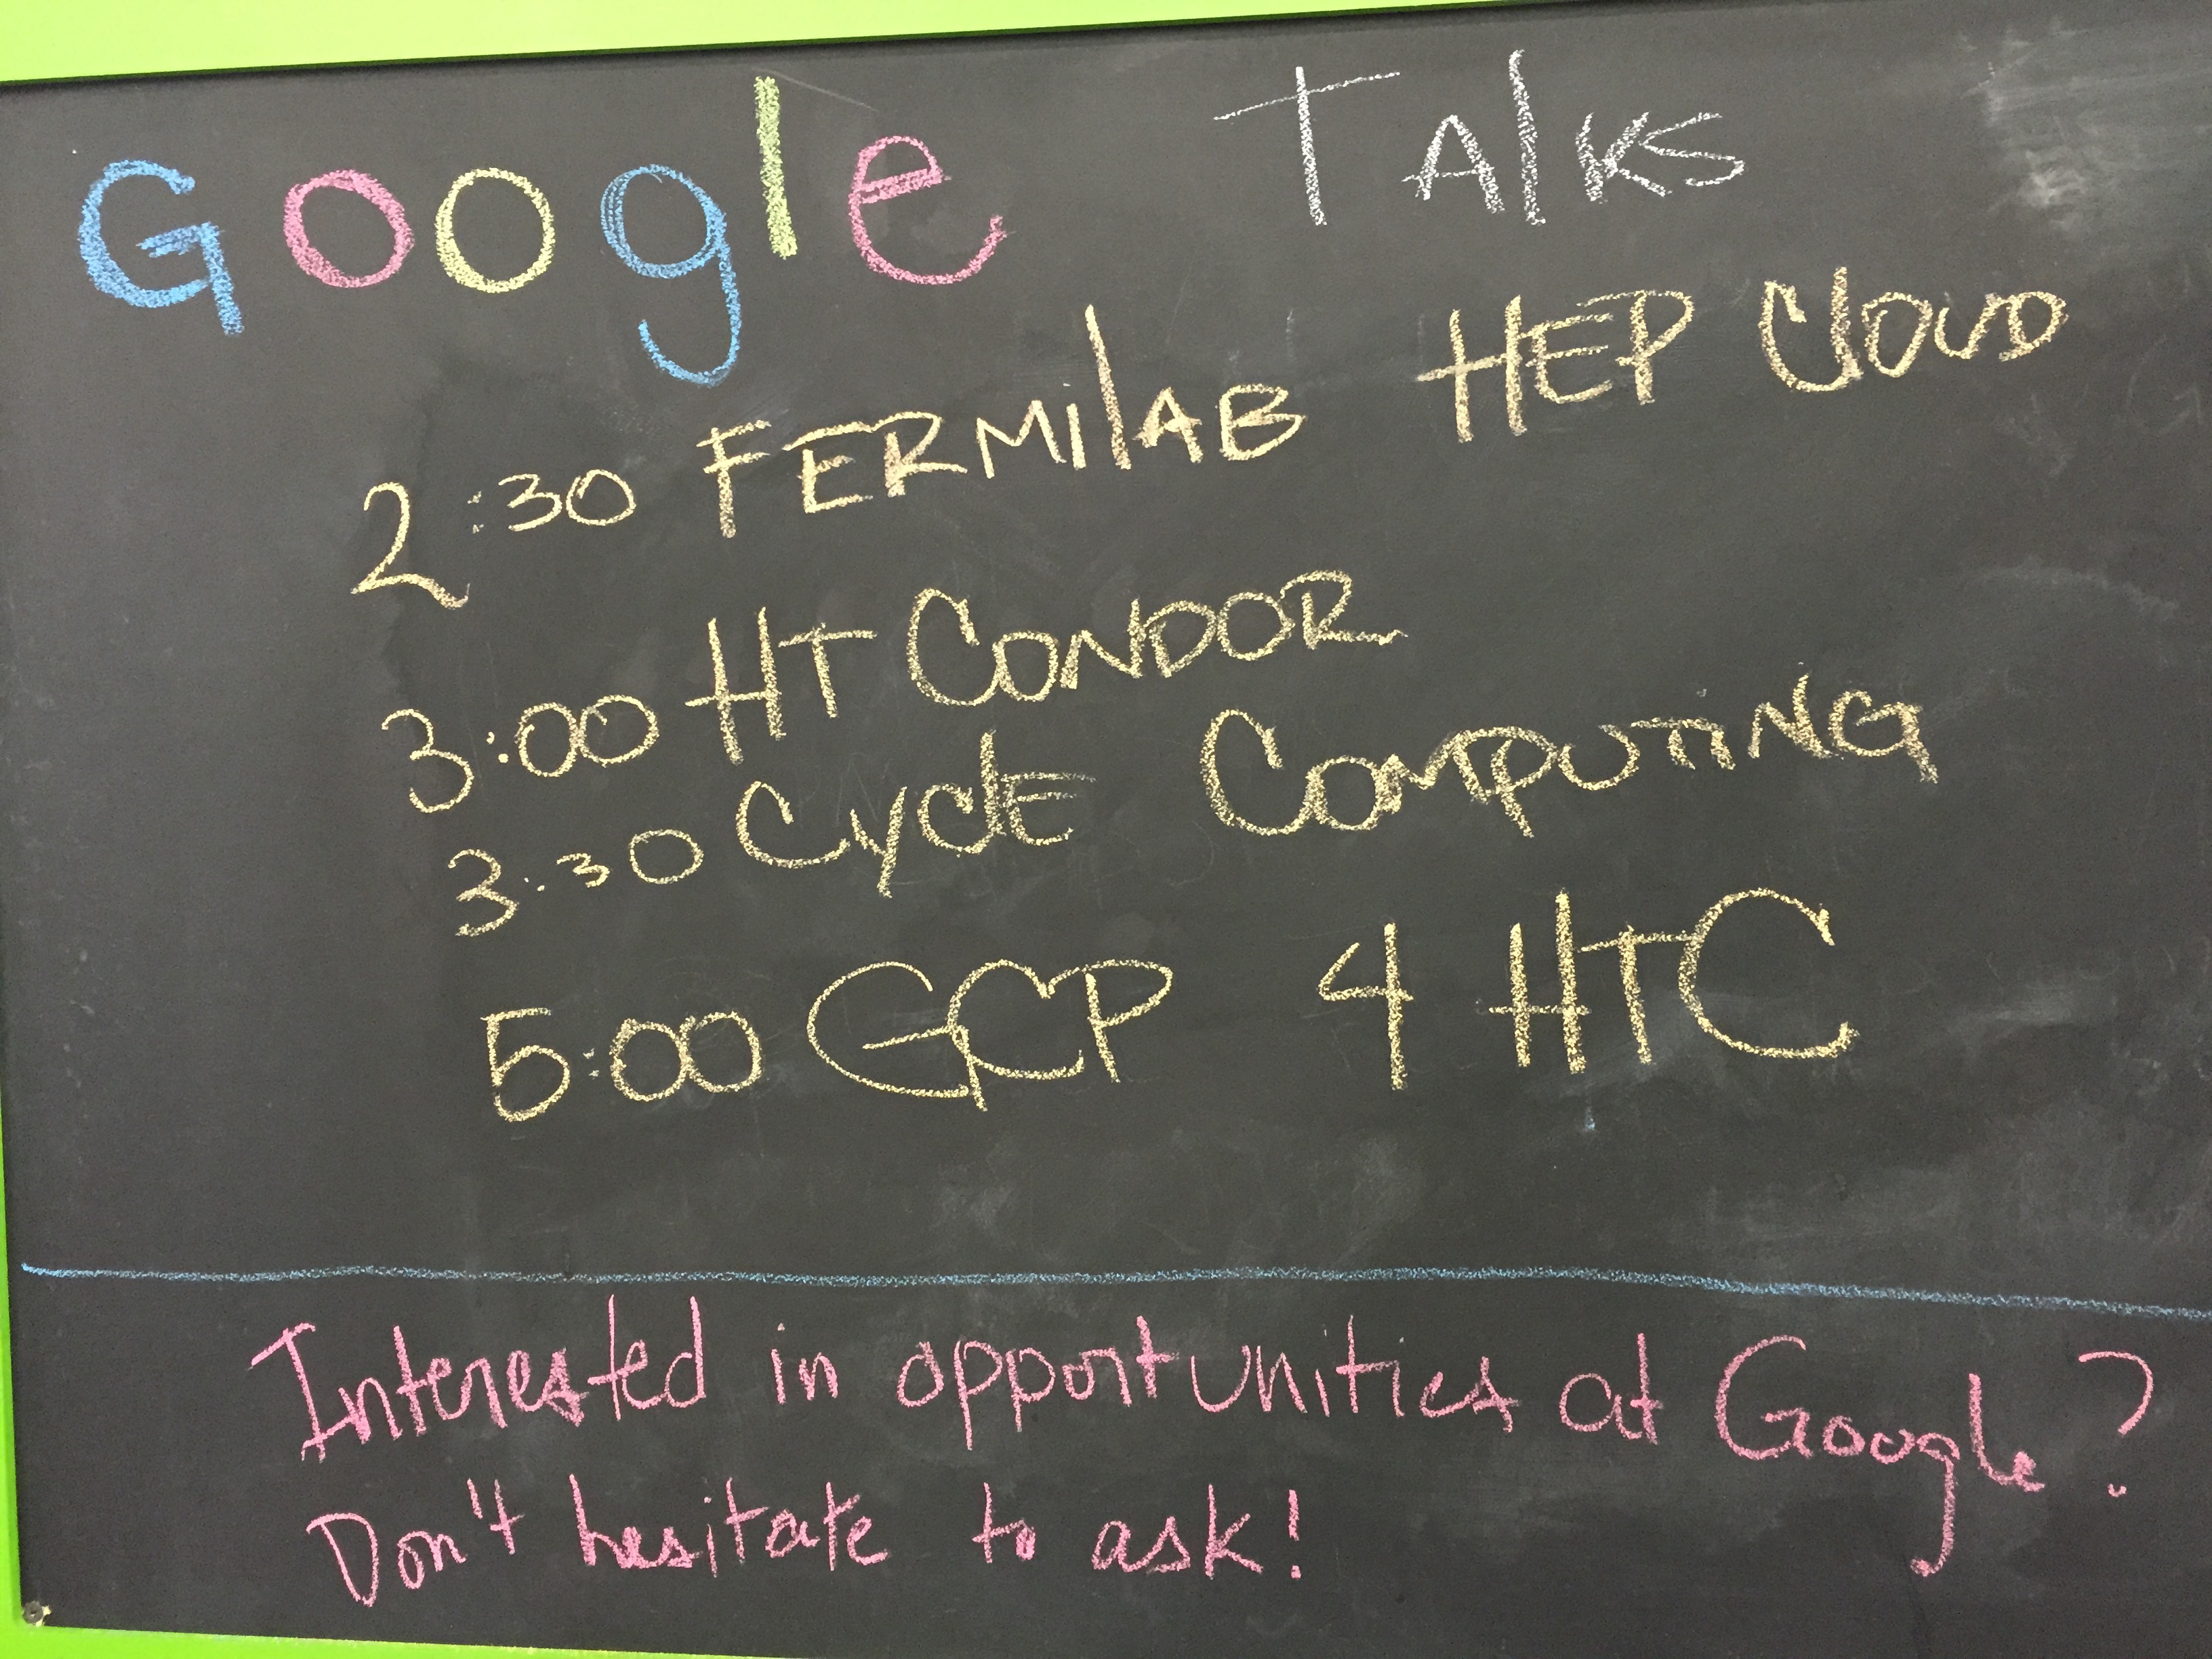 Google Talks
2:30 FERMILAB HEP CLOUD
3:00 HT CONDOR
3:30 CYCLE COMPUTING
5:00 GCP 4 HTC
Interested in opportunities at Google?
Don't hesitate to ask!